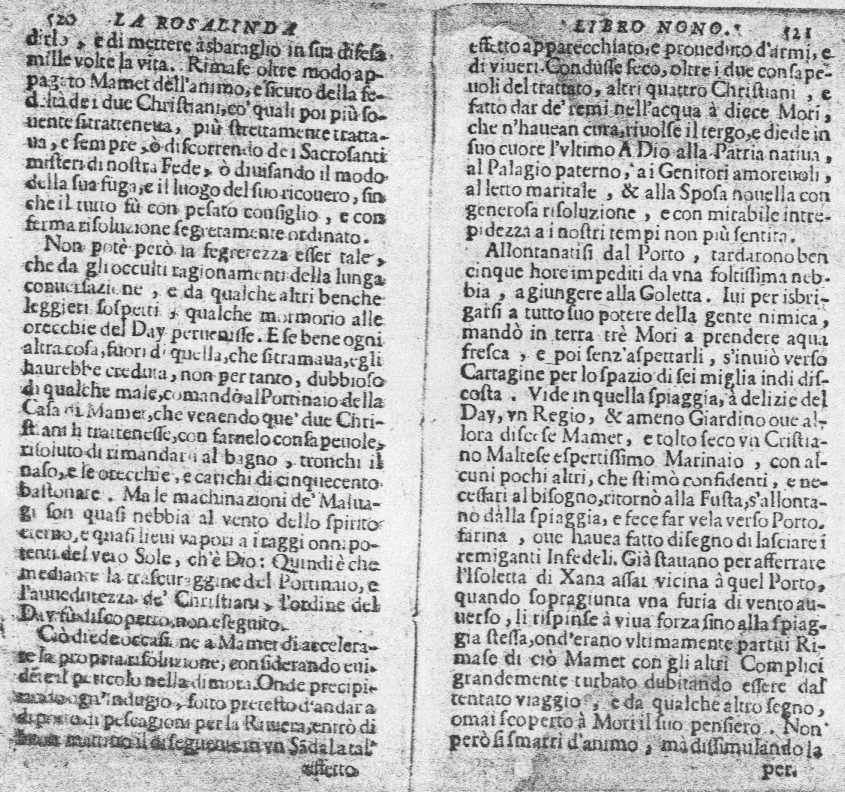 520 LA ROSALINDA
dirlo, e di mettere à sbaraglio in sua difesa
mille volte la vita. Rimase oltre modo ap-
pagato Mamet dell'animo, e sicuro della fe-
deltà de i due Christiani, co' quali poi più so-
uente si tratteneua, più strettamente tratta-
ua, e sempre, ò discorrendo de i Sacrosanti
misteri di nostra Fede, ò diuisando il modo
della sua fuga, e il luogo del suo ricouero, sin
che il tutto fù con pesato consiglio, e con
ferma risoluzione segretamente ordinato.
Non potè però la segretezza esser tale,
che da gli occulti ragionamenti della lunga
conuersazione, e da qualche altri benche
leggieri sospetti, qualche mormorio alle
orecchie del Day peruenisse. E se bene ogni
altra cosa, fuori di quella, che si tramaua, egli
haurebbe creduta, non per tanto, dubbioso
di qualche male, comandò al Portinaio della
Casa di Mamet, che venendo que' due Chri-
stiani li trattenesse, con farnelo consapeuole,
risoluto di rimandarli al bagno, tronchi il
naso, e le orecchie, e carichi di cinquecento
bastonate. Ma le machinazioni de' Malua-
gi son quasi nebbia al vento dello spirito
eterno, e quasi lieui vapori a i raggi onnipo-
tenti del vero Sole, ch'è Dio: Quindi è che
mediante la trascuraggine del Portinaio, e
l'auuedutezza de' Christiani, l'ordine del
Day fù discoperto, non eseguito.
Ciò diede occasione a Mamet di accelera-
re la propria risoluzione, considerando eui-
dete il pericolo nella dimora. Onde precipi-
tando ogn'indugio, sotto pretesto d'andar a
diporto di pescagioni per la Riuiera, entrò di
buon mattino il di seguente in vn Sādal a tal'
effetto
LIBRO NONO. 521
effetto apparecchiato, e proueduto d'armi, e
di viueri. Condusse seco, oltre i due consape-
uoli del trattato, altri quattro Christiani, e
fatto dar de' remi nell'acqua à diece Mori,
che n'hauean cura, riuolse il tergo, e diede in
suo cuore l'vltimo A Dio alla Patria natiua,
al Palagio paterno, a i Genitori amoreuoli,
al letto maritale, & alla Sposa nouella con
generosa risoluzione, e con mirabile intre-
pidezza a i nostri tempi non più sentita.
Allontanatisi dal Porto, tardarono ben
cinque hore impediti da vna foltissima neb-
bia, a giungere alla Goletta. Iui per isbri-
garsi a tutto suo potere della gente nimica,
mandò in terra trè Mori a prendere aqua
fresca, e poi senz'aspettarli, s'inuiò verso
Cartagine per lo spazio di sei miglia indi dis-
costa. Vide in quella spiaggia, à delizie del
Day, vn Regio, & ameno Giardino oue al-
lora discese Mamet, e tolto seco vn Cristia-
no Maltese espertissimo Marinaio, con al-
cuni pochi altri, che stimò confidenti, e ne-
cessari al bisogno, ritornò alla Fusta, s'allonta-
nò dalla spiaggia, e fece far vela verso Porto-
farina, oue hauea fatto disegno di lasciare i
remiganti Infedeli. Già stauano per afferrare
l'Isoletta di Xana assai vicina à quel Porto,
quando sopragiunta vna furia di vento au-
uerso, li rispinse à viua forza sino alla spiag-
gia stessa, ond'erano vltimamente partiti Ri-
mase di ciò Mamet con gli altri Complici
grandemente turbato dubitando essere dal
tentato viaggio, e da qualche altro segno,
omai scoperto à Mori il suo pensiero. Non
però si smarrì d'animo, mà dissimulando la
per.